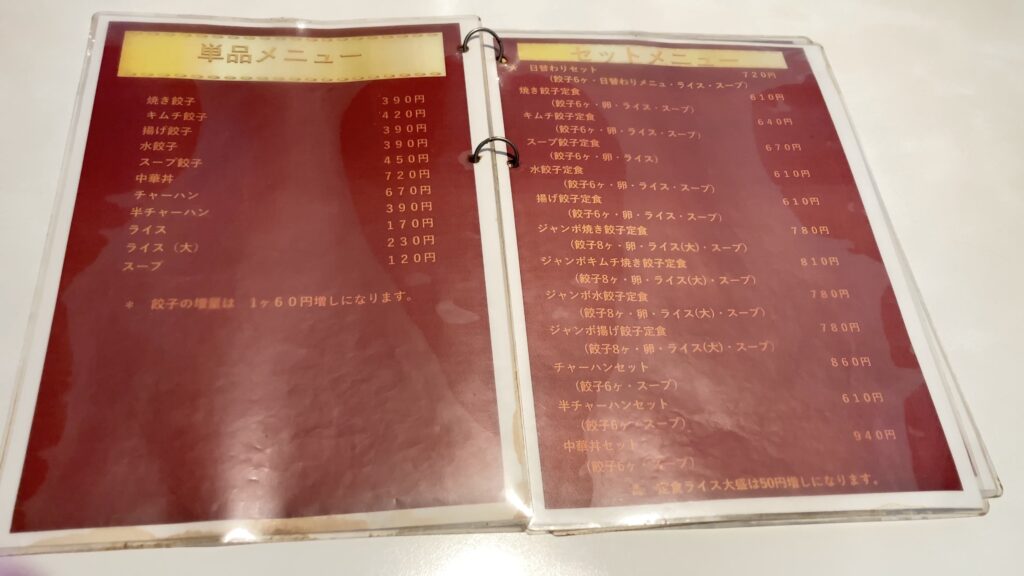 単品メニュー
焼き餃子 390円
キムチ餃子 420円
揚げ餃子 390円
水餃子 390円
スープ餃子 450円
中華丼 720円
チャーハン 670円
半チャーハン 390円
ライス 170円
ライス（大） 230円
スープ 120円
＊ 餃子の増量は 1ヶ60円増しになります。
セットメニュー
日替わりセット 720円
(餃子6ヶ・日替わりメニュ・ライス・スープ)
焼き餃子定食 610円
(餃子6ヶ・卵・ライス・スープ)
キムチ餃子定食 640円
(餃子6ヶ・卵・ライス・スープ)
スープ餃子定食 670円
(餃子6ヶ・卵・ライス)
水餃子定食 610円
(餃子6ヶ・卵・ライス・スープ)
揚げ餃子定食 610円
(餃子6ヶ・卵・ライス・スープ)
ジャンボ焼き餃子定食 780円
(餃子8ヶ・卵・ライス(大)・スープ)
ジャンボキムチ焼き餃子定食 810円
(餃子8ヶ・卵・ライス(大)・スープ)
ジャンボ水餃子定食 780円
(餃子8ヶ・卵・ライス(大)・スープ)
ジャンボ揚げ餃子定食 780円
(餃子8ヶ・卵・ライス(大)・スープ)
チャーハンセット 860円
(餃子6ヶ・スープ)
半チャーハンセット 610円
(餃子6ヶ・スープ)
中華丼セット 940円
(餃子6ヶ・スープ)
定食ライス大盛は50円増しになります。